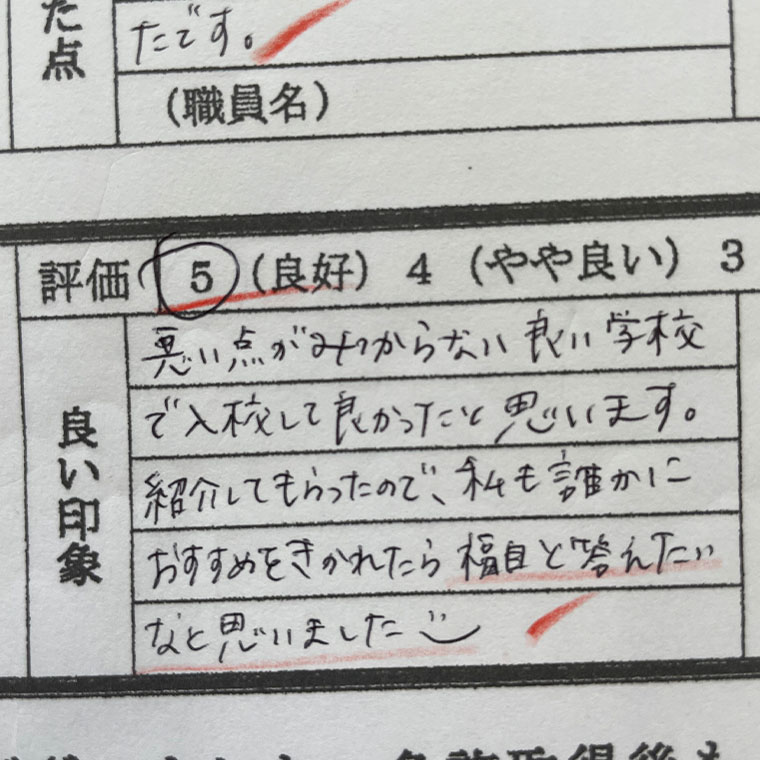 た点
たです。
(職員名)
評価 5 (良好) 4 (やや良い) 3
良い印象
悪い点がみつからない良い学校
で入校して良かったなと思います。
紹介してもらったので、私も誰かに
おすすめをきかれたら福自と答えたい
なと思いました
免許取得後も